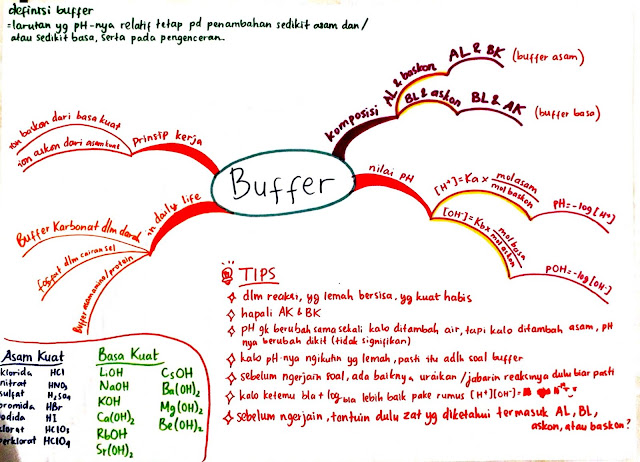 definisi buffer
= larutan yg pH-nya relatif tetap pd penambahan sedikit asam dan/
atau sedikit basa, serta pada pengenceran.
Buffer
komposisi
AL & baskon
AL & BK (buffer asam)
BL & askon
BL & AK (buffer basa)
nilai pH
[H⁺] = Ka x mol asam
mol baskon
pH = -log [H⁺]
[OH⁻] = Kb x mol basa
mol askon
pOH = -log [OH⁻]
Prinsip kerja
ion baskon dari basa kuat
ion askon dari asam kuat
in daily life
Buffer Karbonat dlm darah
fosfat dlm cairan sel
Buffer asam amino/protein
TIPS
dlm reaksi, yg lemah bersisa, yg kuat habis
hapali AK & BK
pH gk berubah sama sekali kalo ditambah air, tapi kalo ditambah asam, pH
nya berubah dikit (tidak signifikan)
kalo pH-nya ngikutin yg lemah, pasti itu adlh soal buffer
sebelum ngerjain soal, ada baiknya, uraikan/jabarin reaksinya dulu biar pasti
kalo ketemu bla + log bla lebih baik pake rumus [H⁺][OH⁻] =
sebelum ngerjain, tentuin dulu zat yg diketahui termasuk AL, BL,
askon, atau baskon?
Asam Kuat
klorida HCl
nitrat HNO₃
sulfat H₂SO₄
bromida HBr
iodida HI
klorat HClO₃
perklorat HClO₄
Basa Kuat
LiOH
NaOH
KOH
Ca(OH)₂
RbOH
Sr(OH)₂
CsOH
Ba(OH)₂
Mg(OH)₂
Be(OH)₂